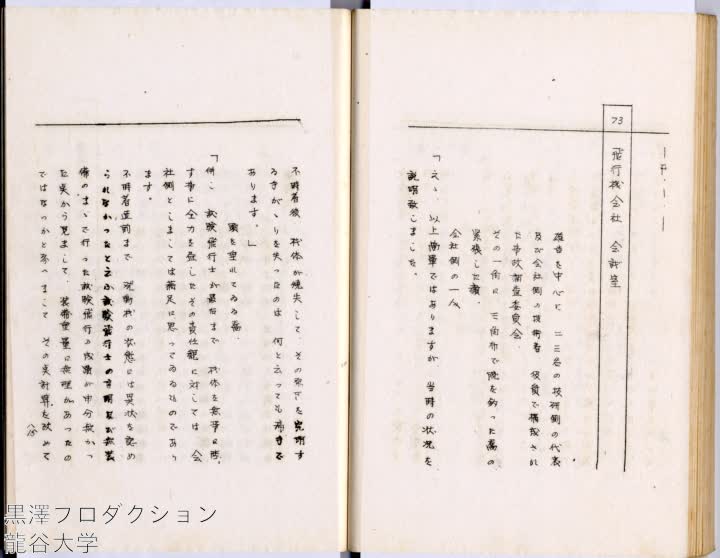 73
飛行機会社 会議室
雄吉を中心に 二三名の技研側の代表
及び会社側の技術者 役員で構成され
た事故調査委員会。
その一角に 三角布で腕を釣った高の
累
会社側の一人
「えゝ、以上簡単ではありますが 当時の状況を
説明致しました。
不時着後 機体が焼失して、その
を失ったのは 何と云っても
あります。」
頭を垂れてゐる高。
「併し 試験飛行士が最后まで 機体を無事に
す事に全力を尽したその責任観に対しては 会
社側としましては満足に思ってゐるものであり
ます。
不時着直前まで 発動機の状態には異状を認め
られなかったと云ふ試験飛行士の言明
備のまゝで行った試験飛行の成績が十分
た点から見まして、装備重量に無理があったの
ではなかったかと考へまして その点計算を改めて
黒澤プロダクション
龍谷大学